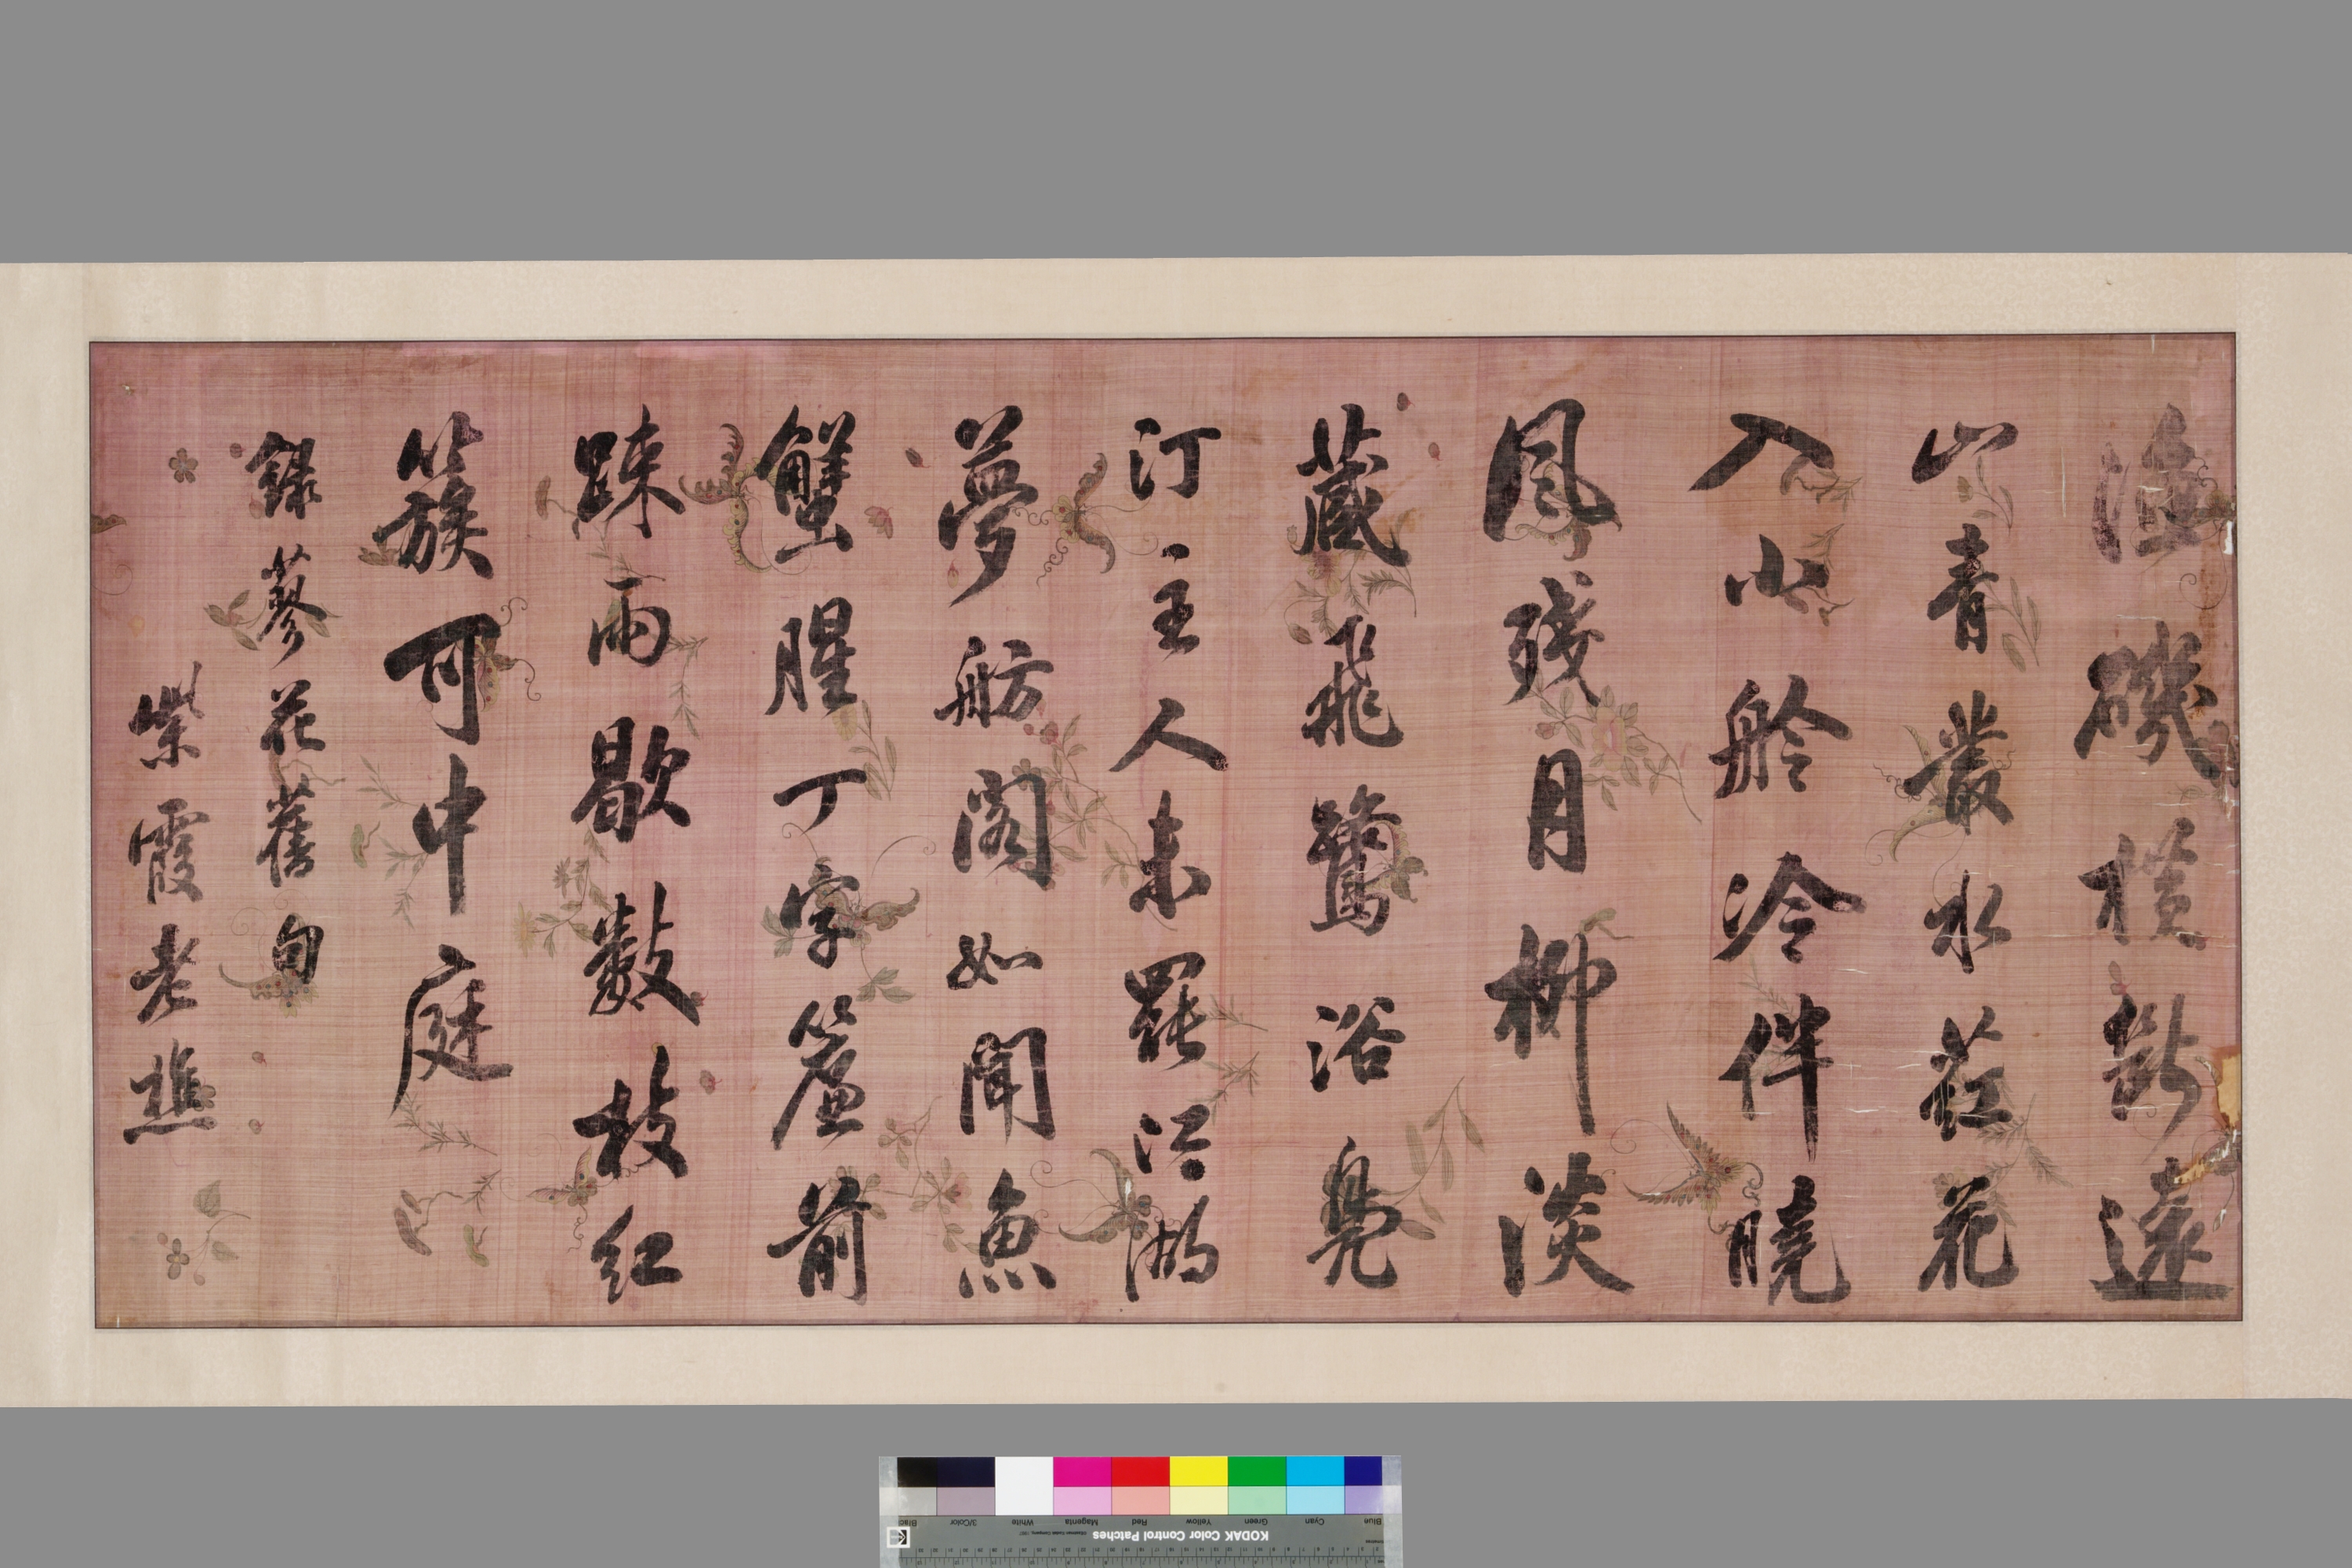 漁磯橫斷遠
山青叢水葒花
入小舲冷伴曉
風殘月柳淡
藏飛鷺浴鳧
汀主人未罷江湖
夢舫閣如聞魚
蟹腥丁字簾前
踈雨歇數枝紅
簇可中庭
錄蓼花舊句
紫霞老樵
KODAK Color Control Patches
Blue Cyan Green Yellow Red Magenta White 3/Color Black